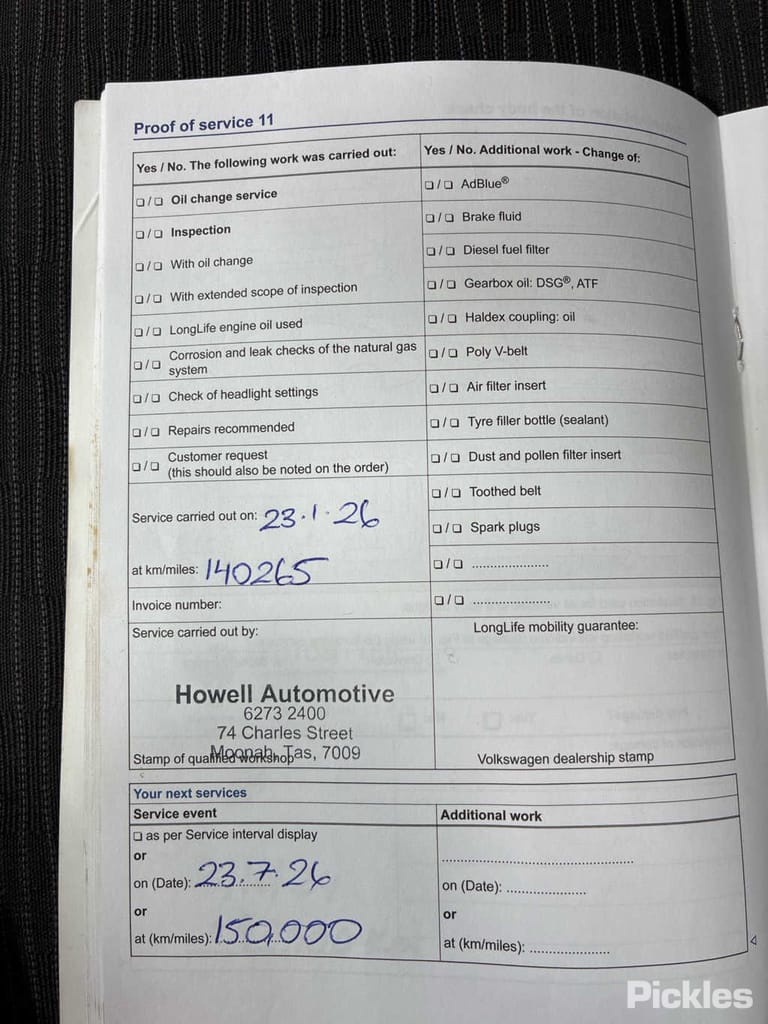 Proof of service 11
Yes / No. The following work was carried out:
❏ / ❏ Oil change service
❏ / ❏ Inspection
❏ / ❏ With oil change
❏ / ❏ With extended scope of inspection
❏ / ❏ LongLife engine oil used
❏ / ❏ Corrosion and leak checks of the natural gas
system
❏ / ❏ Check of headlight settings
❏ / ❏ Repairs recommended
❏ / ❏ Customer request
(this should also be noted on the order)
Service carried out on: 23.1.26
at km/miles: 140265
Invoice number:
Service carried out by:
Howell Automotive
6273 2400
74 Charles Street
Moonah, Tas, 7009
Stamp of qualified workshop
Yes / No. Additional work - Change of:
❏ / ❏ AdBlue®
❏ / ❏ Brake fluid
❏ / ❏ Diesel fuel filter
❏ / ❏ Gearbox oil: DSG®, ATF
❏ / ❏ Haldex coupling: oil
❏ / ❏ Poly V-belt
❏ / ❏ Air filter insert
❏ / ❏ Tyre filler bottle (sealant)
❏ / ❏ Dust and pollen filter insert
❏ / ❏ Toothed belt
❏ / ❏ Spark plugs
❏ / ❏ .....................
❏ / ❏ .....................
LongLife mobility guarantee:
Volkswagen dealership stamp
Your next services
Service event
❏ as per Service interval display
or
on (Date): 23.7.26
or
at (km/miles): 150,000
Additional work
.....................................................
on (Date): ......................
or
at (km/miles): ......................
Pickles